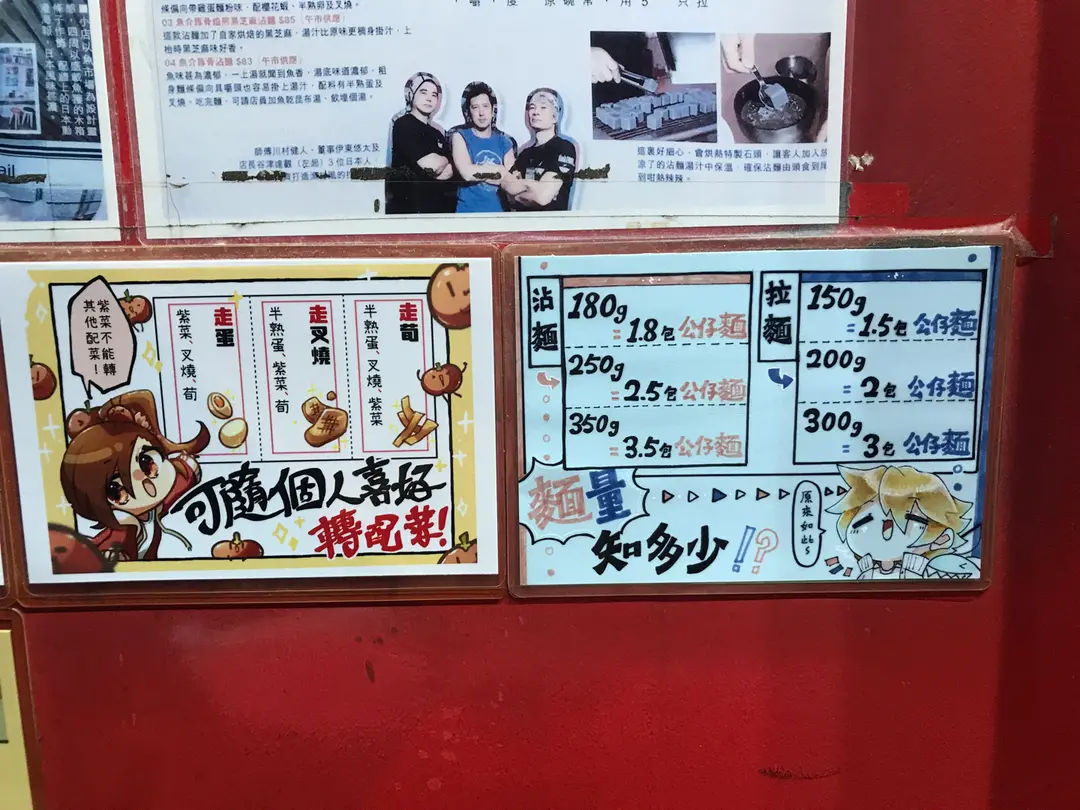 條偏向帶雞蛋麵粉味，配櫻花蝦、半熟卵及叉燒。
這款沾麵加了自家烘焙的黑芝麻，湯汁比原味更稠身掛汁，上
枱時黑芝麻味好香。
04 魚介豚骨沾麵 $83（午市供應）
魚味甚為濃郁，一上湯就聞到魚香，湯底味道濃郁。粗
身麵條偏向具嚼頭也容易掛上湯汁，配料有半熟蛋及
叉燒。吃完麵，可請店員加魚乾昆布湯，飲埋個湯。
師傅川村健人、董事伊東悠太及
店長谷津達觀（左起）3 位日本人
這裏好細心，會烘熱特製石頭，讓客人加入放
涼了的沾麵湯汁中保溫，確保沾麵由頭食到尾
到咁熱辣辣。
紫菜不能轉
其他配菜！
走蛋
紫菜、叉燒、荀
走叉燒
半熟蛋、紫菜、荀
走荀
半熟蛋、叉燒、紫菜
可隨個人喜好
轉配菜!
沾麵
180g
=1.8包公仔麵
250g
=2.5包公仔麵
350g
=3.5包公仔麵
拉麵
150g
=1.5包公仔麵
200g
=2包公仔麵
300g
=3包公仔麵
麵量
知多少!?
原來如此s